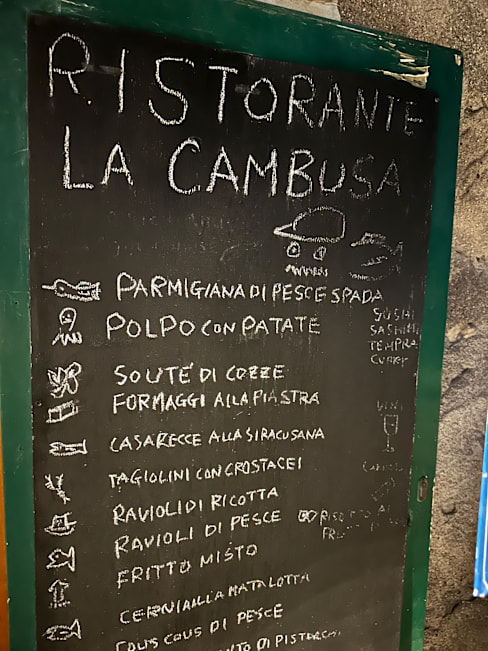 RISTORANTE
LA CAMBUSA
PARMIGIANA DI PESCE SPADA
POLPO CON PATATE
SUSHI
SASHIMI
TEMPRA
SOUTÉ DI COZZE
FORMAGGI ALLA PIASTRA
VINI
CASARECCE ALLA SIRACUSANA
TAGIOLINI CON CROSTACEI
RAVIOLI DI RICOTTA
RAVIOLI DI PESCE
FRITTO MISTO
CERNIA ALLA MATALOTTA
COUS COUS DI PESCE
DI PISTACCHI